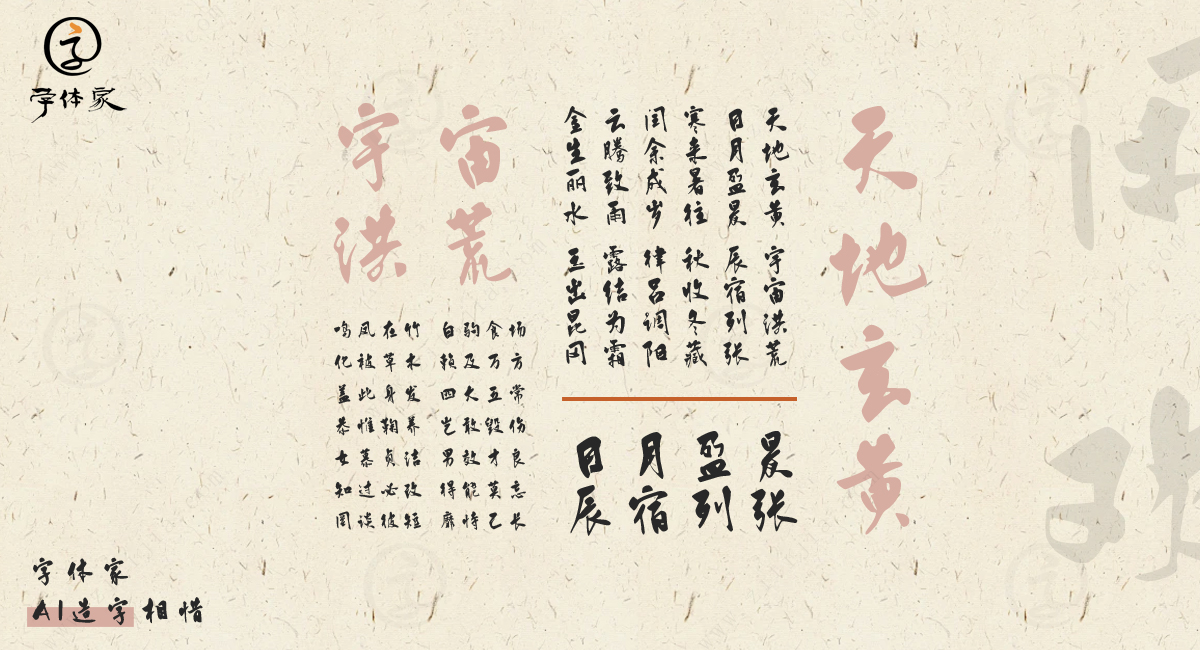 字
字体家
天地玄黄
宇宙
洪荒
天地玄黄 宇宙洪荒
日月盈晨 辰宿列张
寒来暑往 秋收冬藏
闰余成岁 律吕调阳
云腾致雨 露结为霜
金生丽水 玉出昆冈
日月盈晨
辰宿列张
鸣凤在竹 白驹食场
化被草木 赖及万方
盖此身发 四大五常
恭惟鞠养 岂敢毁伤
女慕贞洁 男效才良
知过必改 得能莫忘
罔谈彼短 靡恃己长
字体家
AI造字相惜